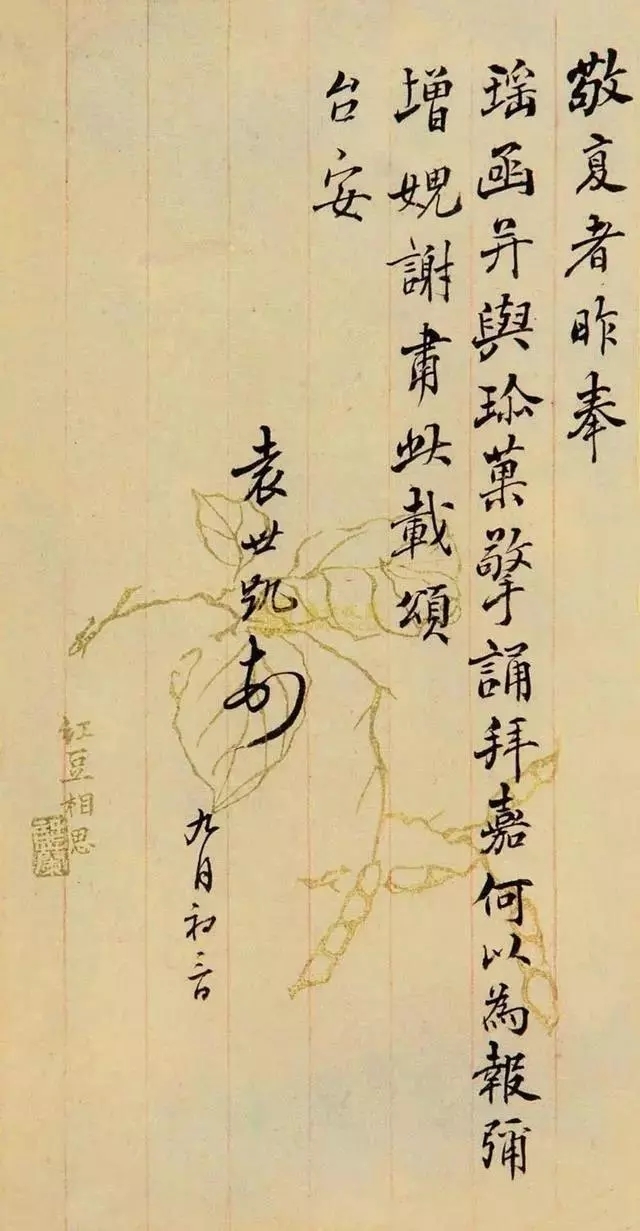 敬复者昨奉
瑶函并與珍菓擎誦拜嘉何以為報彌
增媿謝肅此載頌
台安
袁世凱
九月初三日
紅豆相思